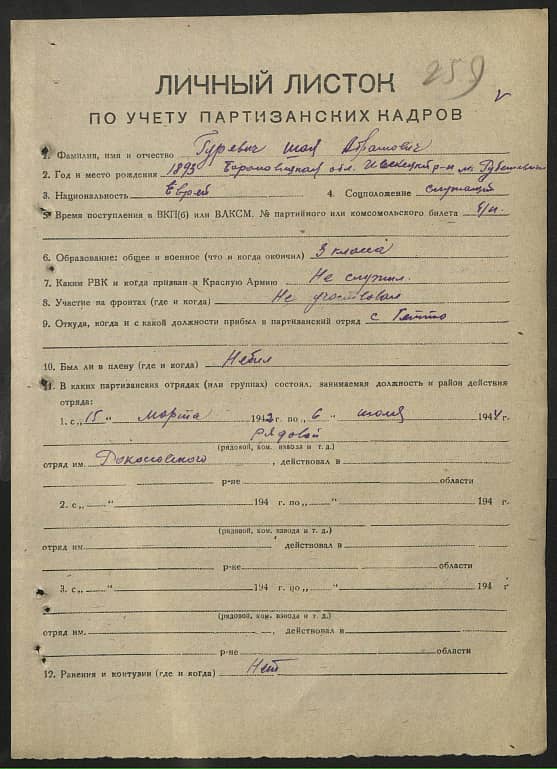 259
ЛИЧНЫЙ ЛИСТОК
ПО УЧЕТУ ПАРТИЗАНСКИХ КАДРОВ
1. Фамилия, имя и отчество Гуревич Шая Абрамович
2. Год и место рождения 1893 Барановицкая обл. Ивенецкий р-н м.
3. Национальность Еврей 4. Соцположение служащий
5. Время поступления в ВКП(б) или ВЛКСМ. № партийного или комсомольского билета б/п.
6. Образование: общее и военное (что и когда окончил) 3 класса
7. Каким РВК и когда призван в Красную Армию Не служил.
8. Участие на фронтах (где и когда) Не участвовал
9. Откуда, когда и с какой должности прибыл в партизанский отряд с Гетто
10. Был ли в плену (где и когда) Небыл
11. В каких партизанских отрядах (или группах) состоял, занимаемая должность и район действия
отряда:
1. с „15 “ марта 1942 г. по „ 6 “ июля 1944 г.
рядовой
(рядовой, ком. взвода и т. д.)
отряд им. , действовал в
р-не области
2. с „ “ 194 г. по „ “ 194 г.
(рядовой, ком. взвода и т. д.)
отряд им. , действовал в
р-не области
3. с „ “ 194 г. по „ “ 194 г.
(рядовой, ком. взвода и т. д.)
отряд им. , действовал в
р-не области
12. Ранения и контузии (где и когда) Нет